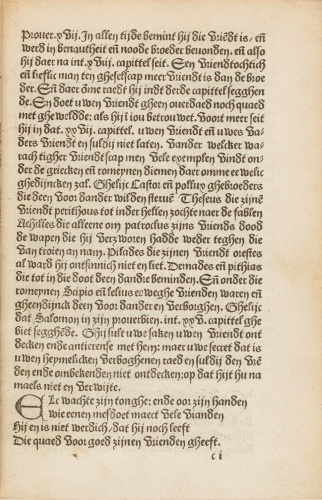 Prouer. xvij. In allen tijde bemint hij die vriēdt is / eñ
werd in benautheit eñ noode broeder beuonden. eñ also
hij daer na int. xvij. capittel seit. Een vriendtochtich
eñ lieflic man ten gheselscap meer vriendt is dan de broe
der. Eñ daer ōme raedt hij indt derde capittel segghen
de. En doet uwen vriendt gheen ouerdaed noch quaed
met gheweldde: als hij i ou betrouwet. Voort meer seit
hij in dat. xxvij. capittel. uwen vriendt eñ uwes va-
ders vriendt en suldij niet laten. Vander welcker wa-
rach tigher vriendtscap men vele exemplen vindt on-
der de griecken eñ romeynen dienen daer omme ewelic
ghedijncken zal. Ghelijc Castor eñ pollux ghebroeders
die deen voor dander wilden steruē Theseus die zijnē
vriendt perithous tot inder hellen zochte naer de fablen
Achilles die alleene om patroclus zijns vriends dood
de wapen die hij verzworen hadde weder teghen die
van troien an nam. Pilades die zijnen vriendt orestes
al ward hij ontsinnich niet en liet. Demades eñ pithias
die tot in die doot deen dandrē beminden. Eñ onder die
romeynen Scipio eñ lelius eeweghe vrienden waren eñ
gheendijnck deen voor dander en verborghen. Ghelijc
dat Salomon in zijn prouerbien. int. xxv. capittel ghe
biet segghede. Ghij sult uwe saken uwen vriendt ont
decken ende anticrense met hem: maer uwe secret dat is
uwen heymelicken verboghenen raed en suldij den vrē
den ende ombekenden niet ontdecken: op dat hijt hu na
maels niet en verwijte.
Elc wachte zijn tonghe: ende oor zijn handen
wie eenen mesdoet maect vele vianden
Hij en is niet werdich / dat hij noch leeft
Die quaed voor goed zijnen vrienden gheeft.
c i